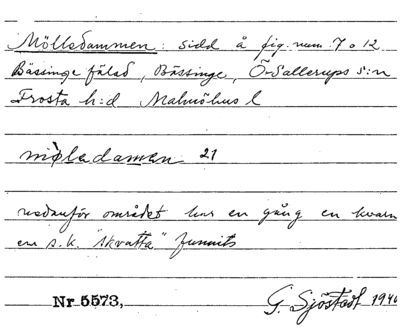 Möllsdammen: sidd å fig. num. 7 o 12
Bässinge fälad, Bässinge, Ö. Sallerups s:n
Frosta h:d Malmöhus l
möladamen 21
nedanför området har en gång en kvarn
en s.k. "skvatta" funnits
Nr 5573, G. Sjöstedt 194